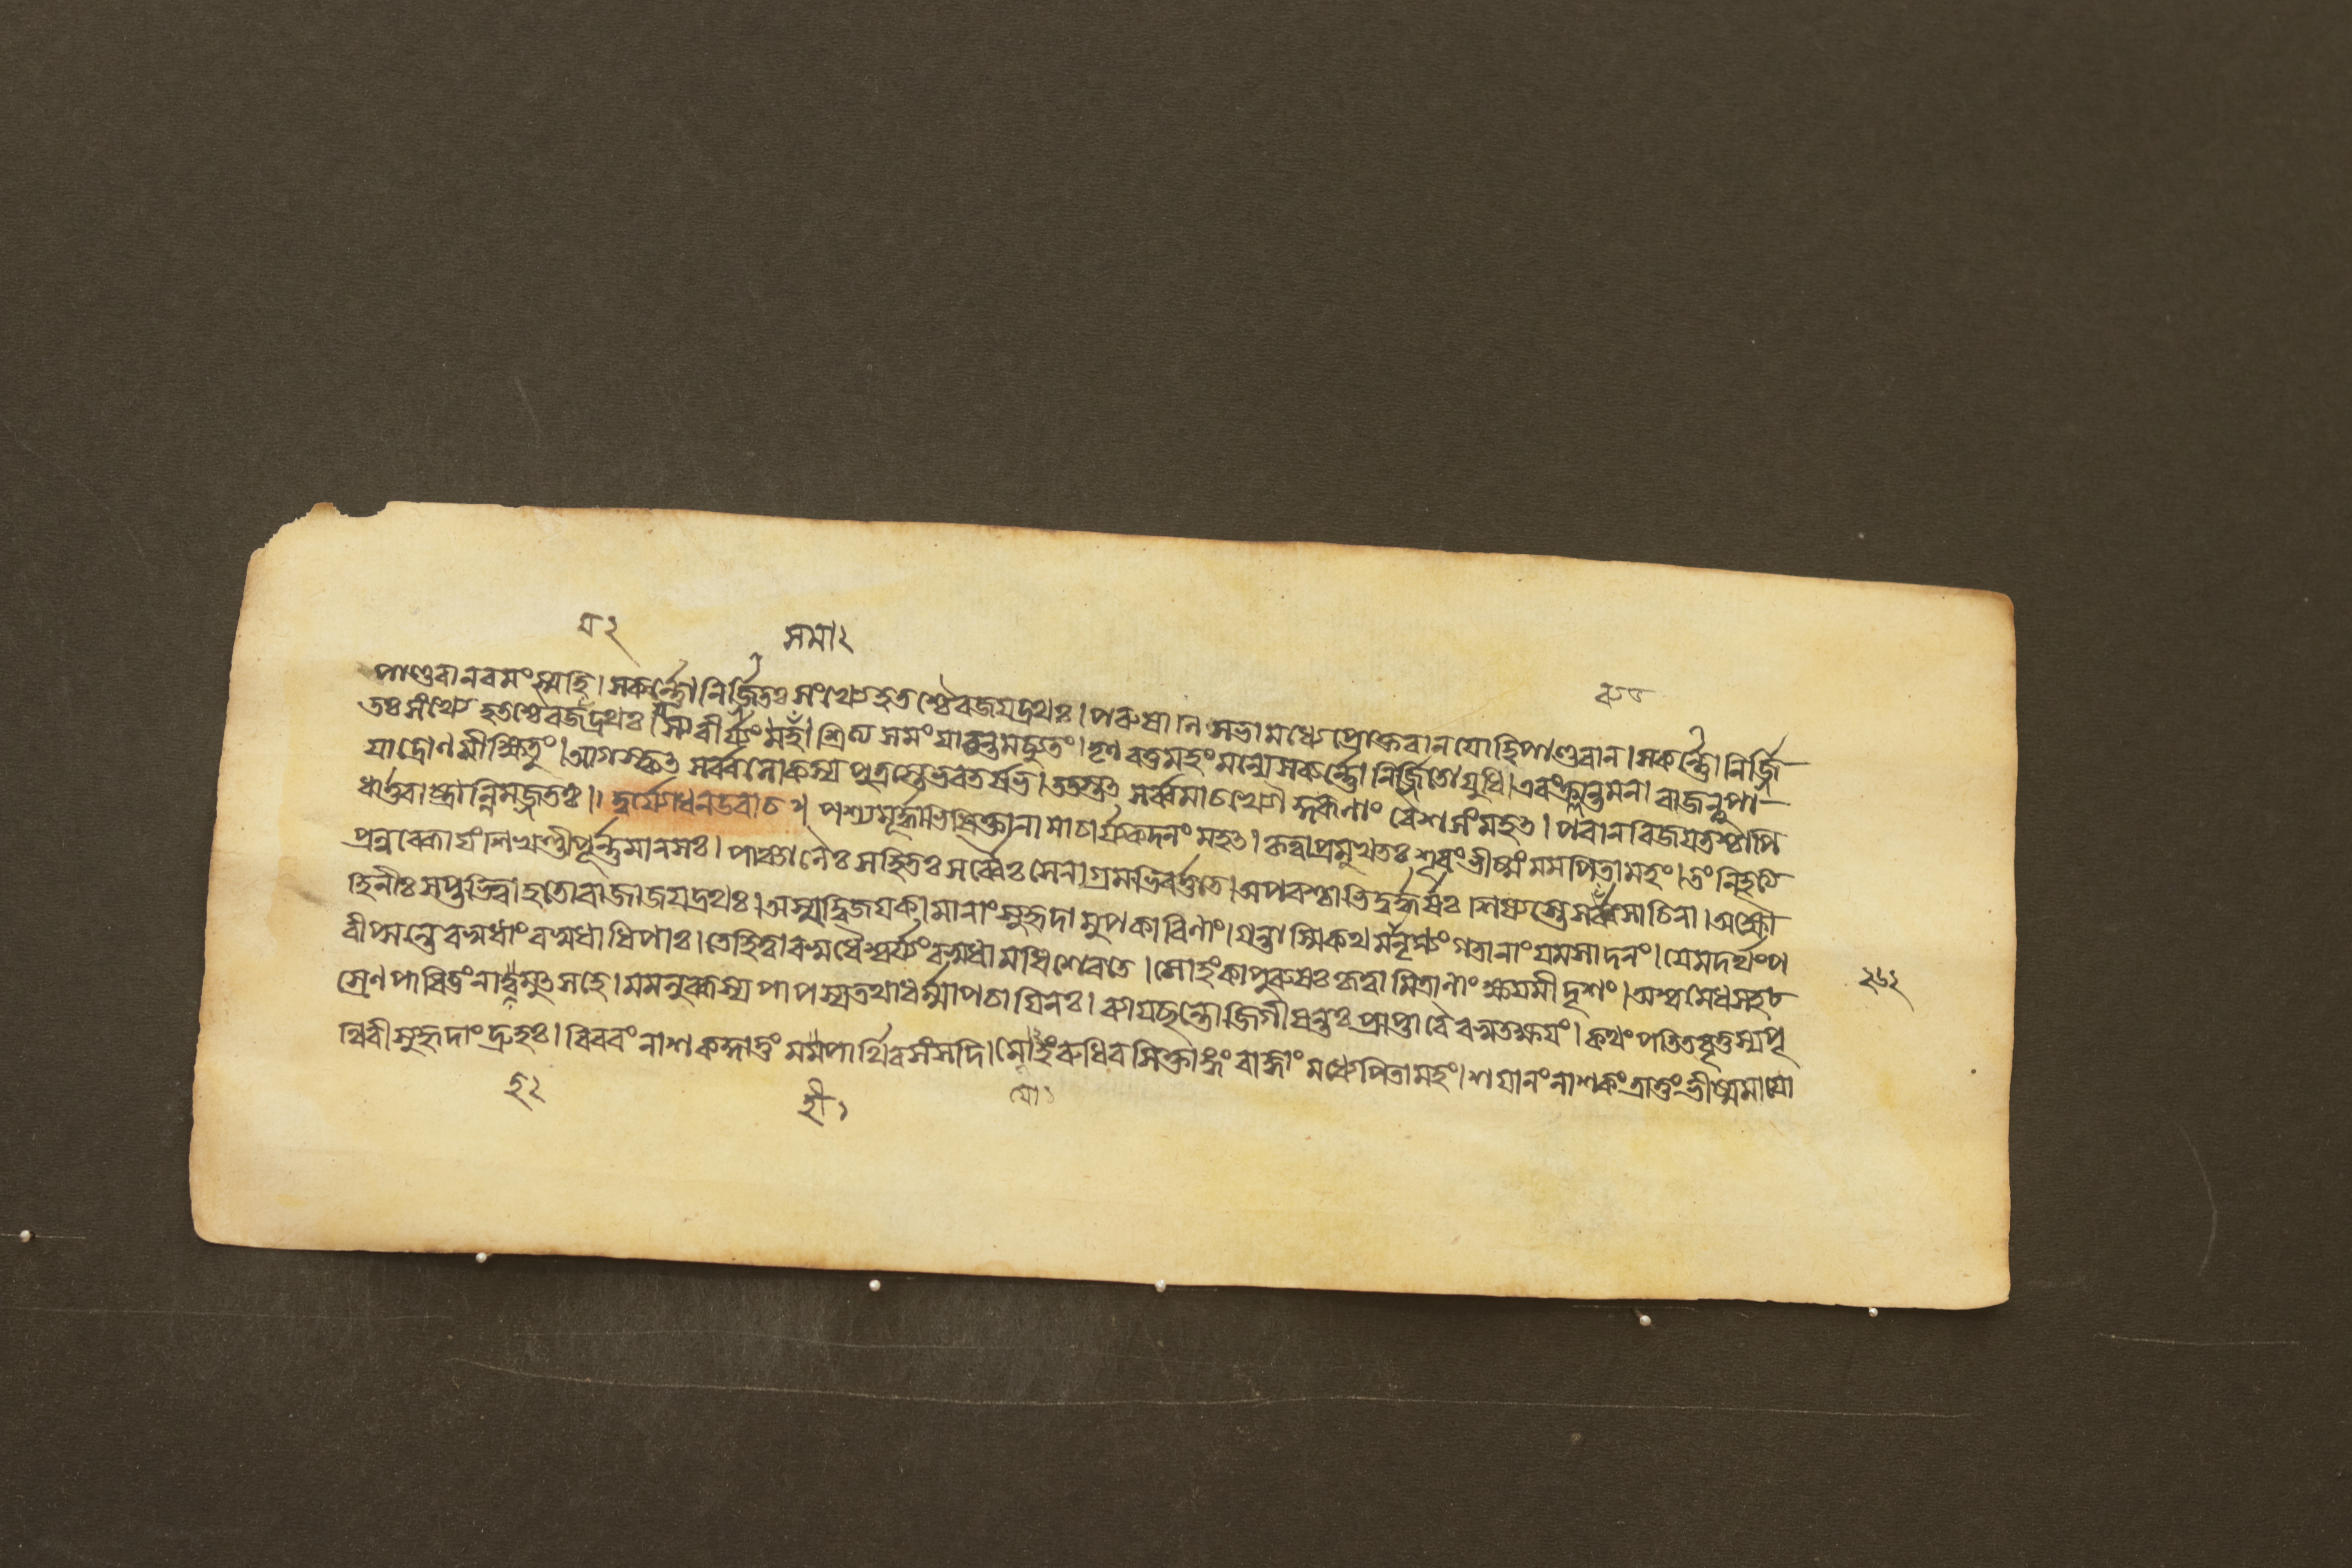 য ২ সমা ২
পাণ্ডবানবমংস্মহি। সকর্ন্নোনির্জিতঃ সংখ্যেহতশ্চৈবজয়দ্রথঃ। পৰুষানিসভামধ্যেপ্রোক্তবানযোহিপাণ্ডবান। সকর্ন্নোনির্জ্জি
তঃ সংখ্যে হতশ্চৈবজদ্রথঃ। বীর্য্যং শ্রিত্য সমংযাচন্তমচ্যুতং। তৃণবত্তমহংমন্যেসকর্ন্নোনির্জ্জিতোযুধি। এবংক্লান্তমনা ৰাজন্নুপা
যাদ্রোণমীক্ষিতুং। আগস্কৃৎ সর্ব্বলোকস্যপুত্রস্তেভৰতর্ষভ। ততস্তৎ সর্ব্বমাচখ্যৌ কুৰূণাং বৈশসংমহৎ। পৰানবিজয়তশ্চাপি
ধার্ত্তৰাষ্ট্রান্নিমজ্জতঃ।। দুর্য্যোধনউবাচ। পশ্যমূর্দ্ধাভিষিক্তানামাচার্য্যকদনংমহৎ। কৃত্বাপ্রমুখতঃ শূৰংভীষ্মংমমপিতামহং। তংনিহত্যে
প্রলুব্ধোযংশিখণ্ডীপূর্ন্নমানসঃ। পাঞ্চালৈঃ সহিতঃ সর্ব্বৈঃ সেনাগ্রমভিবর্ত্ততে। অপৰশ্চাতিদুর্দ্ধর্ষঃ শিষ্যস্তেসব্যসাচিনা। অক্ষৌ
হিনীঃ সপ্তহিত্বাহতোৰাজাজয়দ্রথঃ। অস্মদ্বিজয়কামানাংসুহৃদামুপকাৰিণাং। গন্তাস্মিকথমানৃণ্যংগতানাংযমসাদনং। যেমদর্থংপ
ৰীপ্সন্তেবসুধাংবসুধাধিপাঃ। তেহিত্বাবসুধৈশ্বর্য্যংবসুধামধিশেৰতে। সোহংকাপুৰুষঃ কৃত্বামিত্রানাংক্ষয়মীদৃশং। অশ্বমেধসহ
স্রেণপাবিতুংনা মুৎসহে। মমলুব্ধস্যপাপস্যতথাধর্ম্মাপচায়িনঃ। ব্যাযছন্তোজিগীষন্তঃ প্রাপ্তাবৈবস্বতক্ষয়ং। কথংপতিতবৃত্তস্যপৃ
থিবীসুহৃদাংদ্রুহঃ। বিবৰংনাশকদ্দাতুং মমপার্থিবসংসদি। সোহংৰুধিৰসিক্তাঙ্গং ৰাজ্ঞাং মধ্যেপিতামহং। শয়ানংনাশকংত্রাতুংভীষ্মমাযো
২৬২
হ ২ হী ১ যো ১